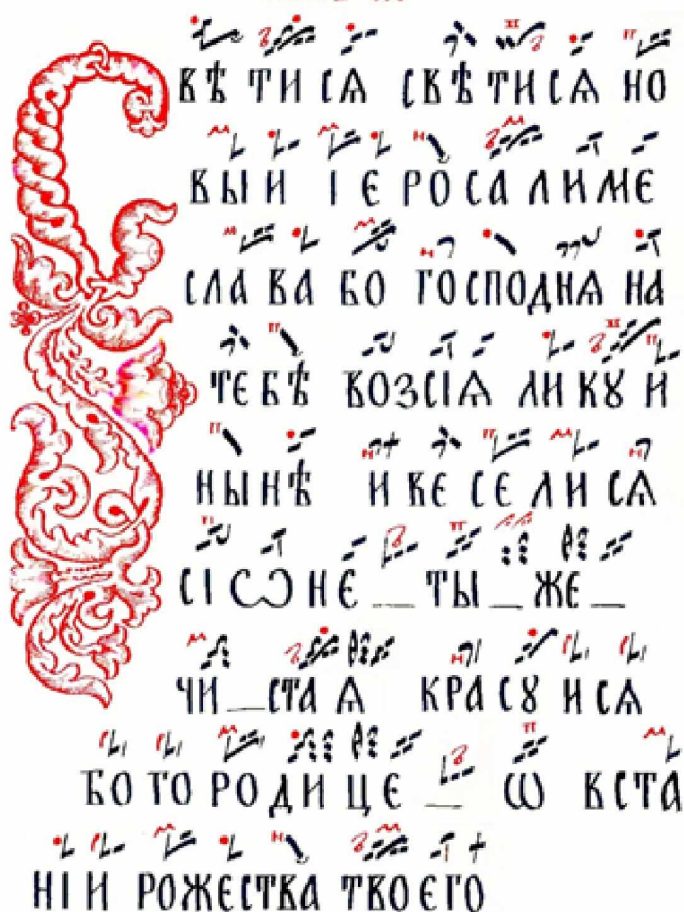 СВѢТИСѦ СВѢТИСѦ НО
ВЫИ ІЄРОСАЛИМЄ
СЛАВА БО ГОСПОДНѦ НА
ТЄБѢ ВОЗСІѦ ЛИКꙊИ
НЫНѢ И ВЄСЄЛИСѦ
СІѠНЄ _ ТЫ _ ЖЄ _
ЧИ _ СТАѦ КРАСꙊИСѦ
БОГОРОДИЦЄ _ Ѡ ВСТА
НІИ РОЖЄСТВА ТВОЄГО